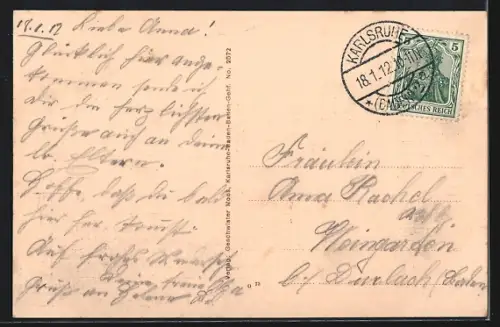 18.1.12 Liebe Anna!
Glücklich hier ange-
kommen sende ich
Dir die herzlichsten
Grüße auch an deine
lb. Eltern.
Hoffe, daß du bald
hier her kommst.
Auf frohes Wiederseh
Deine treue
Gruß an
Verlag: Geschwister Moos, Karlsruhe-Baden-Baden-Gehf. No. 2072
G 22
KARLSRUHE
18.1.12
(BADEN)
5
DEUTSCHES REICH
Fräulein
Anna Rachel
Weingarten
b/ Durlach (Baden